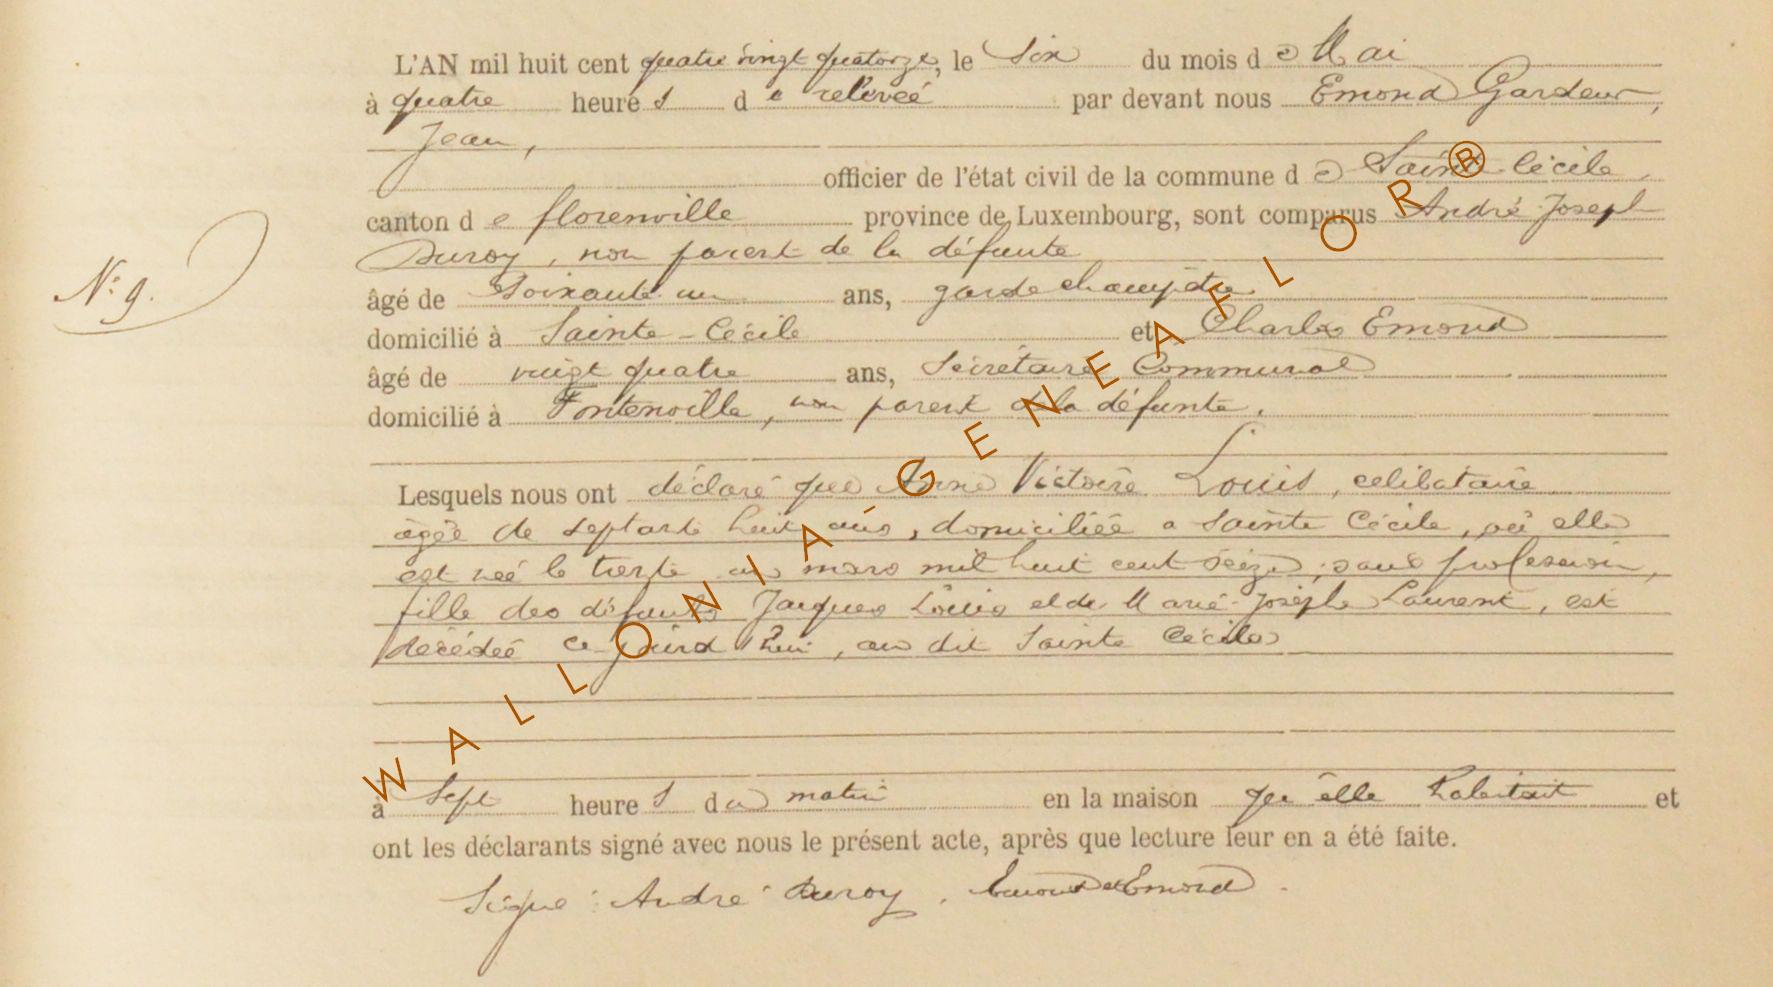 L'AN mil huit cent quatre vingt quatorze, le Six du mois de Mai
à quatre heures de relevée par devant nous Emond Gardeur,
Jean,
officier de l'état civil de la commune de Sainte Cécile,
canton de florenville province de Luxembourg, sont comparus André Joseph
Duroy, non parent de la défunte
N° 9.
âgé de Soixante un ans, garde champêtre
domicilié à Sainte-Cécile et Charles Emond
âgé de vingt quatre ans, Secrétaire Communal
domicilié à Fontenoille, non parent de la défunte.
Lesquels nous ont déclaré que Anne Victoire Louis, celibataire
agée de septante huit ans, domiciliée a Sainte Cécile, où elle
est née le trente un mars mil huit cent seize, sans profession,
fille des défunts Jacques Louis et de Marie-Joseph Laurent, est
décédée ce jourd'hui, au dit Sainte Cécile
à Sept heures du matin en la maison qu'elle habitait et
ont les déclarants signé avec nous le présent acte, après que lecture leur en a été faite.
Signé : André Duroy, Emond et Emond.
WALLONIA GENEAFLOR®